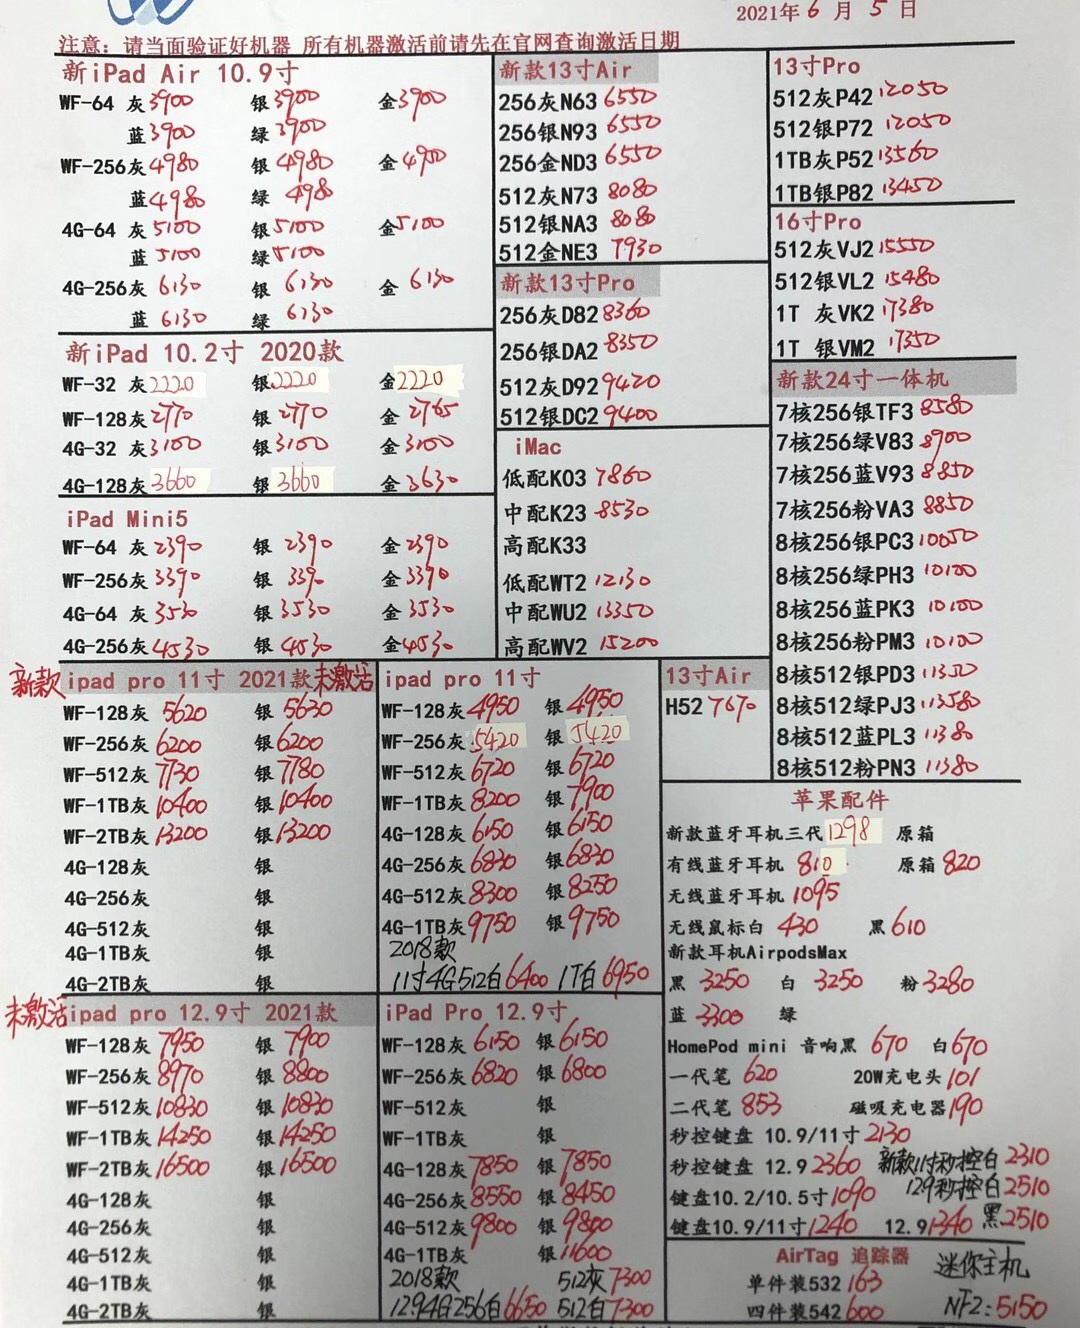 2021年6月5日
注意：请当面验证好机器 所有机器激活前请先在官网查询激活日期
新iPad Air 10.9寸
WF-64 灰3900 银3900 金3900
蓝3900 绿3900
WF-256灰4980 银4980 金4900
蓝4980 绿4980
4G-64 灰5100 银5100 金5100
蓝5100 绿5100
4G-256灰6130 银6130 金6130
蓝6130 绿6130
新iPad 10.2寸 2020款
WF-32 灰2220 银2220 金2220
WF-128灰2770 银2770 金2765
4G-32 灰3100 银3100 金3100
4G-128灰3660 银3660 金3630
iPad Mini5
WF-64 灰2390 银2390 金2390
WF-256灰3390 银339 金3390
4G-64 灰3530 银3530 金3530
4G-256灰4530 银4530 金4530
新款13寸Air
256灰N63 6550
256银N93 6550
256金ND3 6550
512灰N73 8080
512银NA3 8080
512金NE3 7930
新款13寸Pro
256灰D82 8360
256银DA2 8350
512灰D92 9420
512银DC2 9400
iMac
低配K03 7860
中配K23 8530
高配K33
低配WT2 12130
中配WU2 13350
高配WV2 15200
13寸Pro
512灰P42 12050
512银P72 12050
1TB灰P52 13560
1TB银P82 13450
16寸Pro
512灰VJ2 15550
512银VL2 15480
1T 灰VK2 17380
1T 银VM2 17350
新款24寸一体机
7核256银TF3 8580
7核256绿V83 8900
7核256蓝V93 8850
7核256粉VA3 8850
8核256银PC3 10050
8核256绿PH3 10100
8核256蓝PK3 10100
8核256粉PM3 10100
8核512银PD3 11350
8核512绿PJ3 11580
8核512蓝PL3 11380
8核512粉PN3 11380
新款 ipad pro 11寸 2021款未激活
WF-128灰 5620 银 5630
WF-256灰 6200 银 6200
WF-512灰 7730 银 7780
WF-1TB灰 10400 银 10400
WF-2TB灰 13200 银 13200
4G-128灰 银
4G-256灰 银
4G-512灰 银
4G-1TB灰 银
4G-2TB灰 银
ipad pro 11寸
WF-128灰4950 银4950
WF-256灰5420 银5420
WF-512灰6720 银6720
WF-1TB灰8200 银7900
4G-128灰6150 银6150
4G-256灰6830 银6830
4G-512灰8300 银8250
4G-1TB灰9750 银9750
2018款
11寸4G512白6400 1T白6950
13寸Air
H52 7670
未激活 ipad pro 12.9寸 2021款
WF-128灰 7950 银 7900
WF-256灰 8970 银 8800
WF-512灰 10830 银 10830
WF-1TB灰 14250 银 14250
WF-2TB灰 16500 银 16500
4G-128灰 银
4G-256灰 银
4G-512灰 银
4G-1TB灰 银
4G-2TB灰 银
iPad Pro 12.9寸
WF-128灰 6150 银 6150
WF-256灰 6820 银 6800
WF-512灰 银
WF-1TB灰 银
4G-128灰7850 银7850
4G-256灰8550 银8450
4G-512灰9800 银9800
4G-1TB灰 银11600
2018款 512灰7300
12.9 4G256白6650 512白7300
苹果配件
新款蓝牙耳机三代1298 原箱
有线蓝牙耳机 810 原箱820
无线蓝牙耳机 1095
无线鼠标白 430 黑610
新款耳机AirpodsMax
黑 3250 白 3250 粉3280
蓝 3300 绿
HomePod mini 音响黑 670 白670
一代笔 620 20W充电头101
二代笔 853 磁吸充电器190
秒控键盘 10.9/11寸2130
秒控键盘 12.9 2360 新款11寸秒控白2310
12.9秒控白2510
键盘10.2/10.5寸1090
键盘10.9/11寸1240 12.9 1340 黑2510
AirTag 追踪器
单件装532 163
四件装542 600
迷你主机
NF2：5150